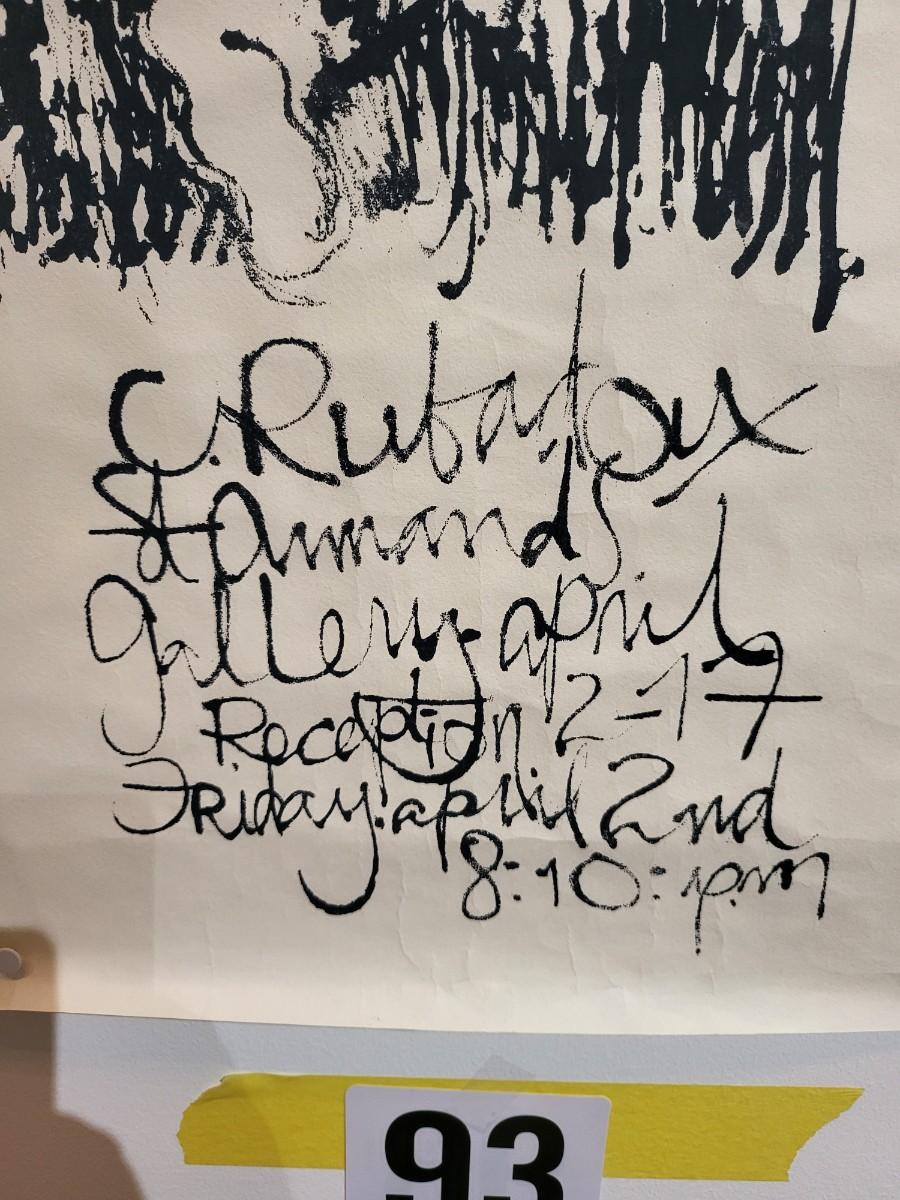 C. Rubadoux
St Armands
Gallery - april
2-17
Reception
Friday: april 2nd
8:10: p.m
93